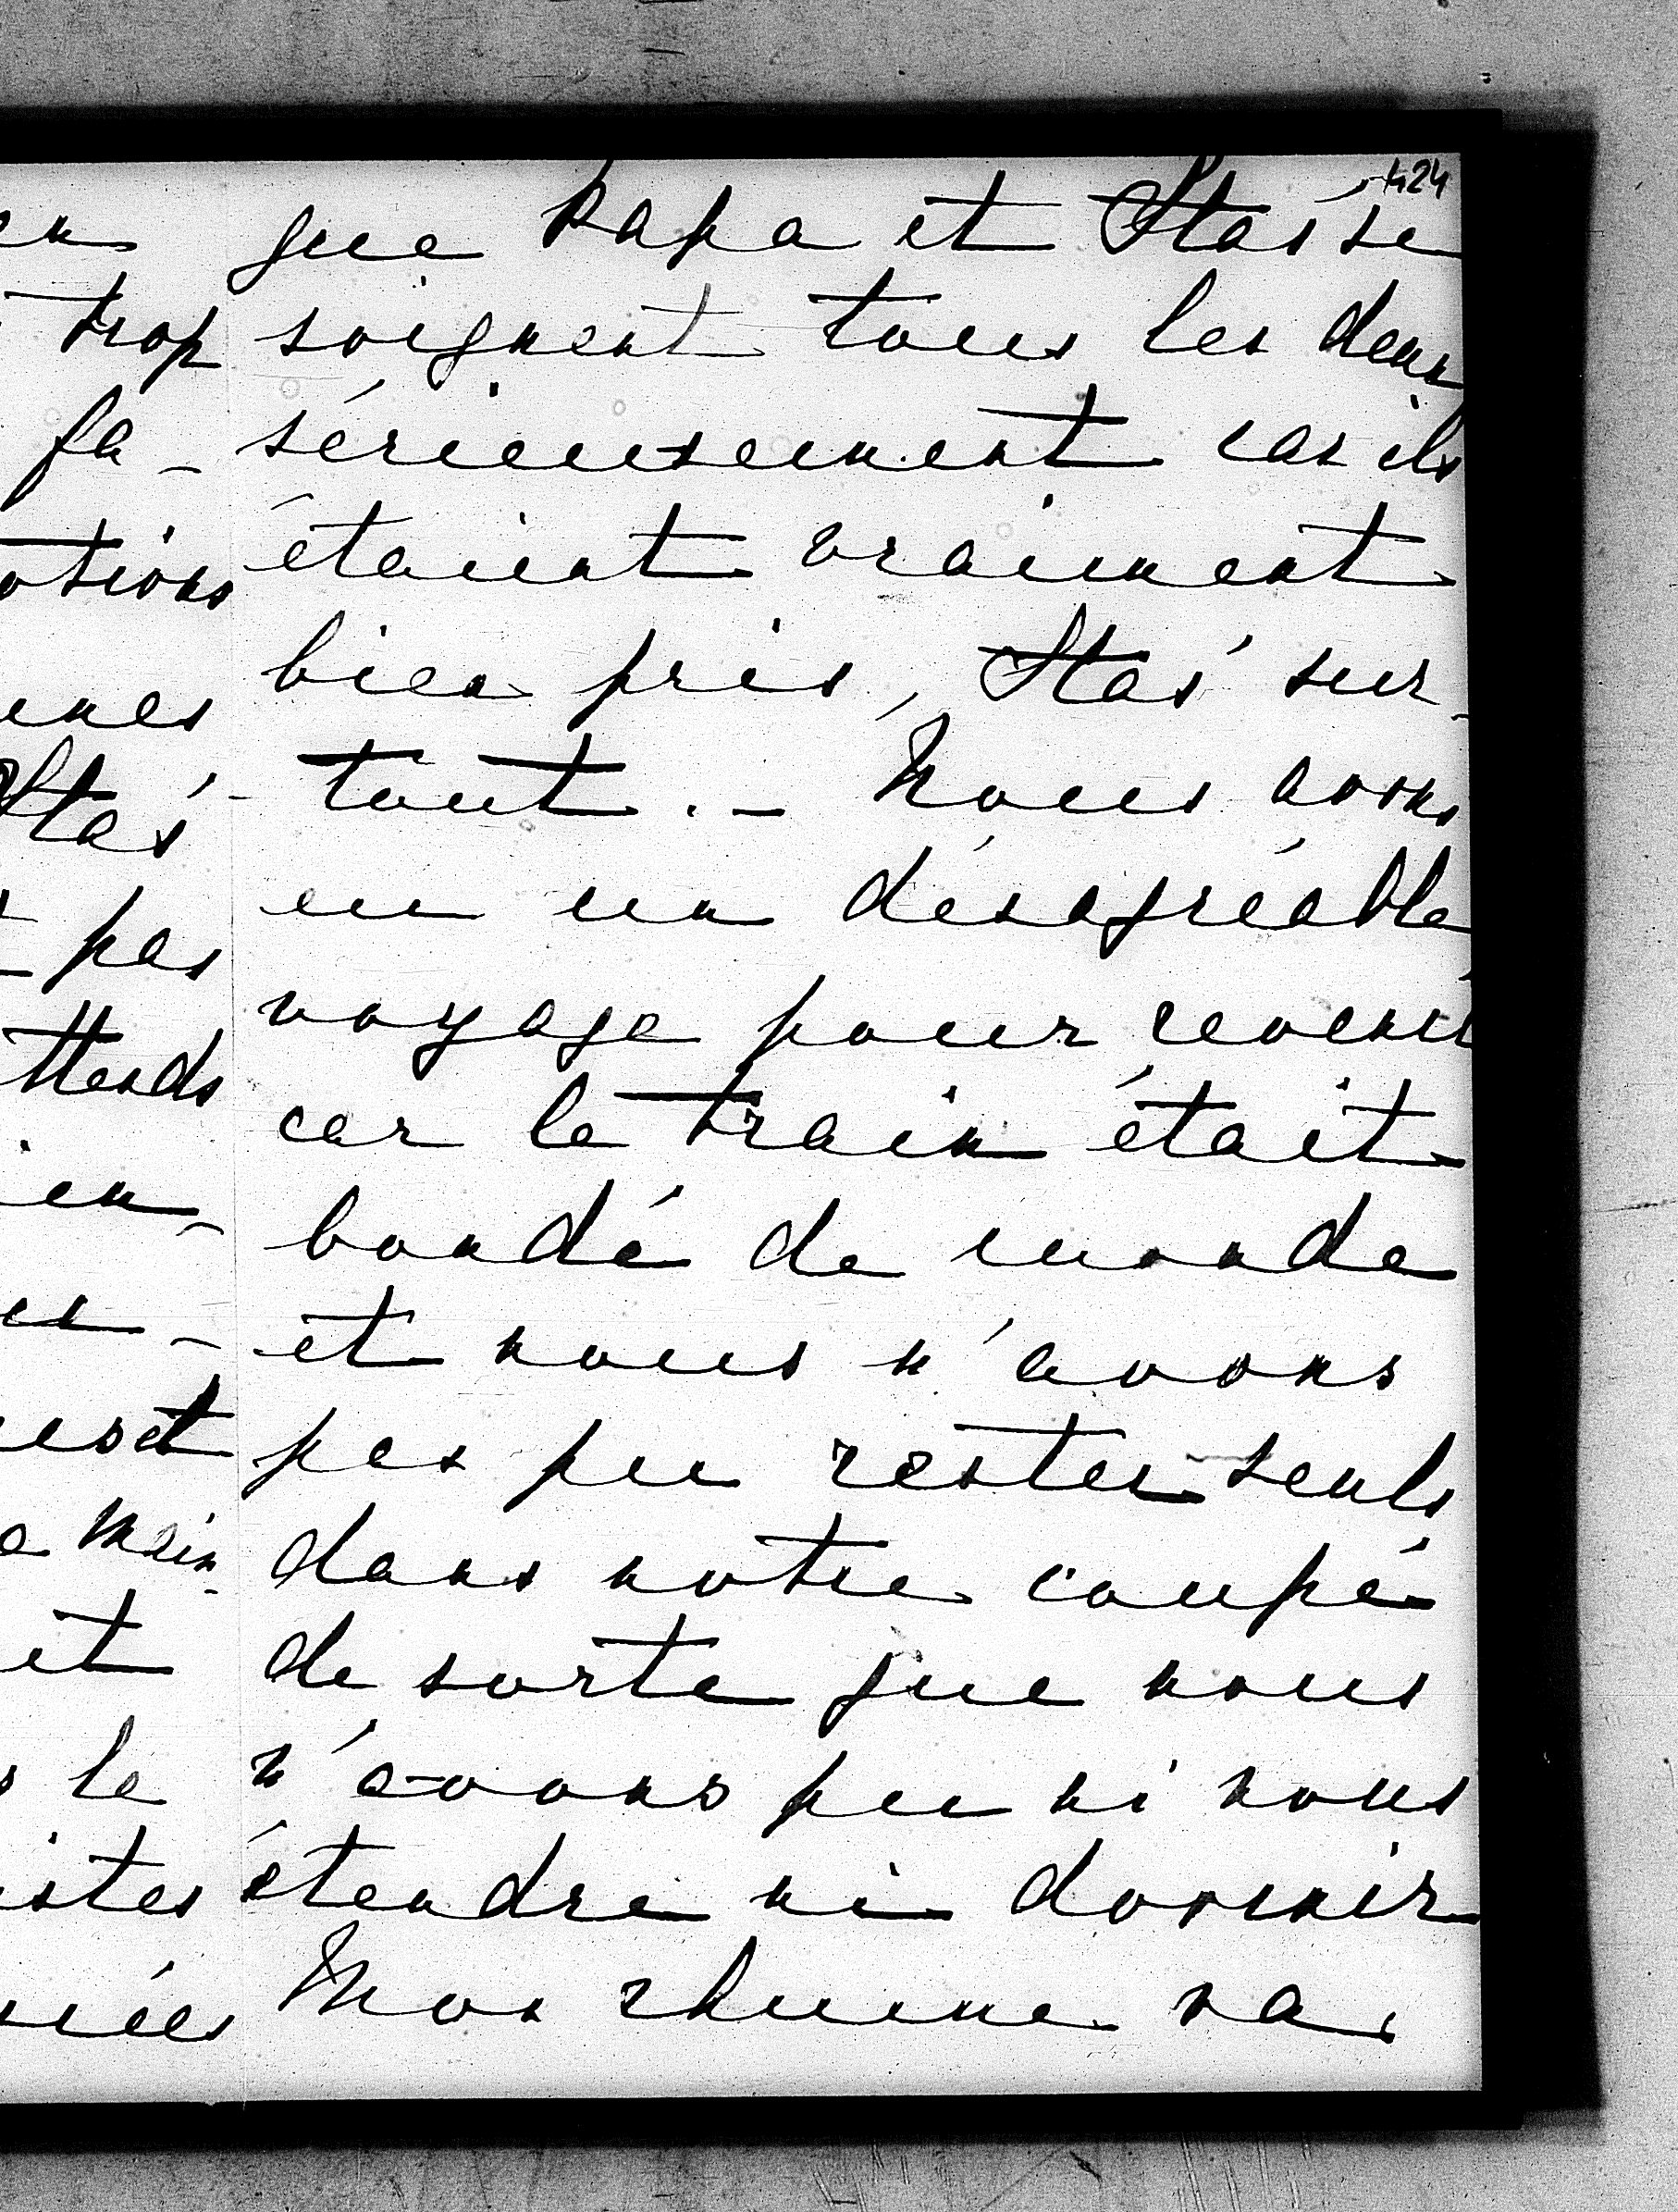 424
en
trop
fa-
otions
unes
Staś-
pas
ttends
ien-
en-
et
main-
et
le
istes
nées
que Papa et Staś se
soignent tous les deux
sérieusement car ils
étaient vraiment
bien pris, Staś sur-
tout. – Nous avons
eu un désagréable
voyage pour revenir
car le train était
bondé de monde
et nous n'avons
pas pu rester seuls
dans notre coupé
de sorte que nous
n'avons pu ni nous
étendre ni dormir
Mon rhume va